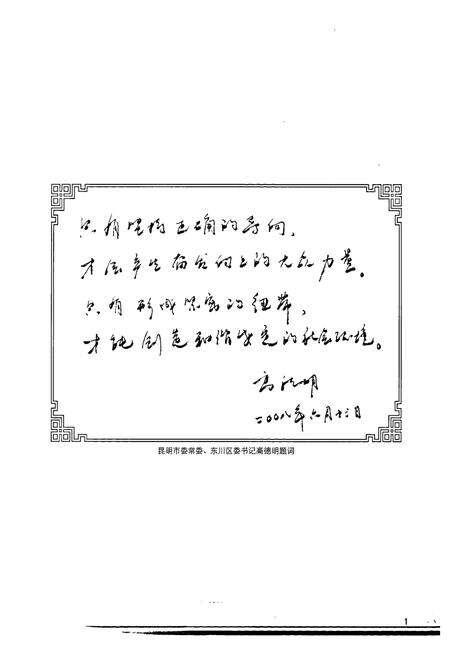 只有坚持正确的导向,
才会产生奋发向上的大众力量。
只有形成紧密的纽带,
才能创造和谐安定的社会环境。
高德明
二00八年六月十三日
昆明市委常委、东川区委书记高德明题词
1